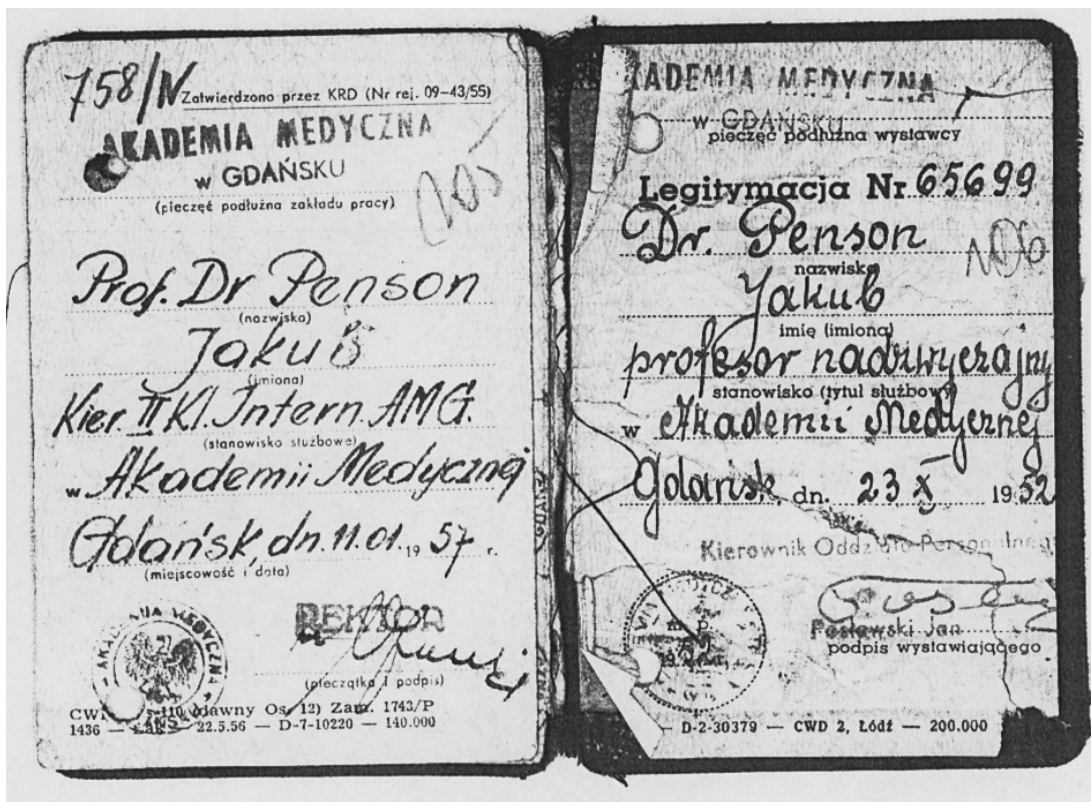 758/IV Zatwierdzono przez KRD (Nr rej. 09-43/55)
AKADEMIA MEDYCZNA
w GDAŃSKU
(pieczęć podłużna zakładu pracy)
Prof. Dr Penson
(nazwisko)
Jakub
(imiona)
Kier. II Kl. Intern. AMG.
(stanowisko służbowe)
w Akademii Medycznej
Gdańsk, dn. 11.01. 19 57 r.
(miejscowość i data)
AKADEMIA MEDYCZN
REKTOR
(pieczątka i podpis)
(dawny Os. 12) Zam. 1743/P
1436 — 22.5.56 — D-7-10220 — 140.000
KADEMIA MEDYCZNA
w GDAŃSKU
pieczęć podłużna wystawcy
Legitymacja Nr 65699
Dr. Penson
nazwisko
Jakub
imię (imiona)
profesor nadzwyczajny
stanowisko (tytuł służbowy)
w Akademii Medycznej
Gdańsk dn. 23 X 1952
Kierownik Oddziału Personalnego
m. p.
Posławski Jan
podpis wystawiającego
D-2-30379 — CWD 2, Łódź — 200.000